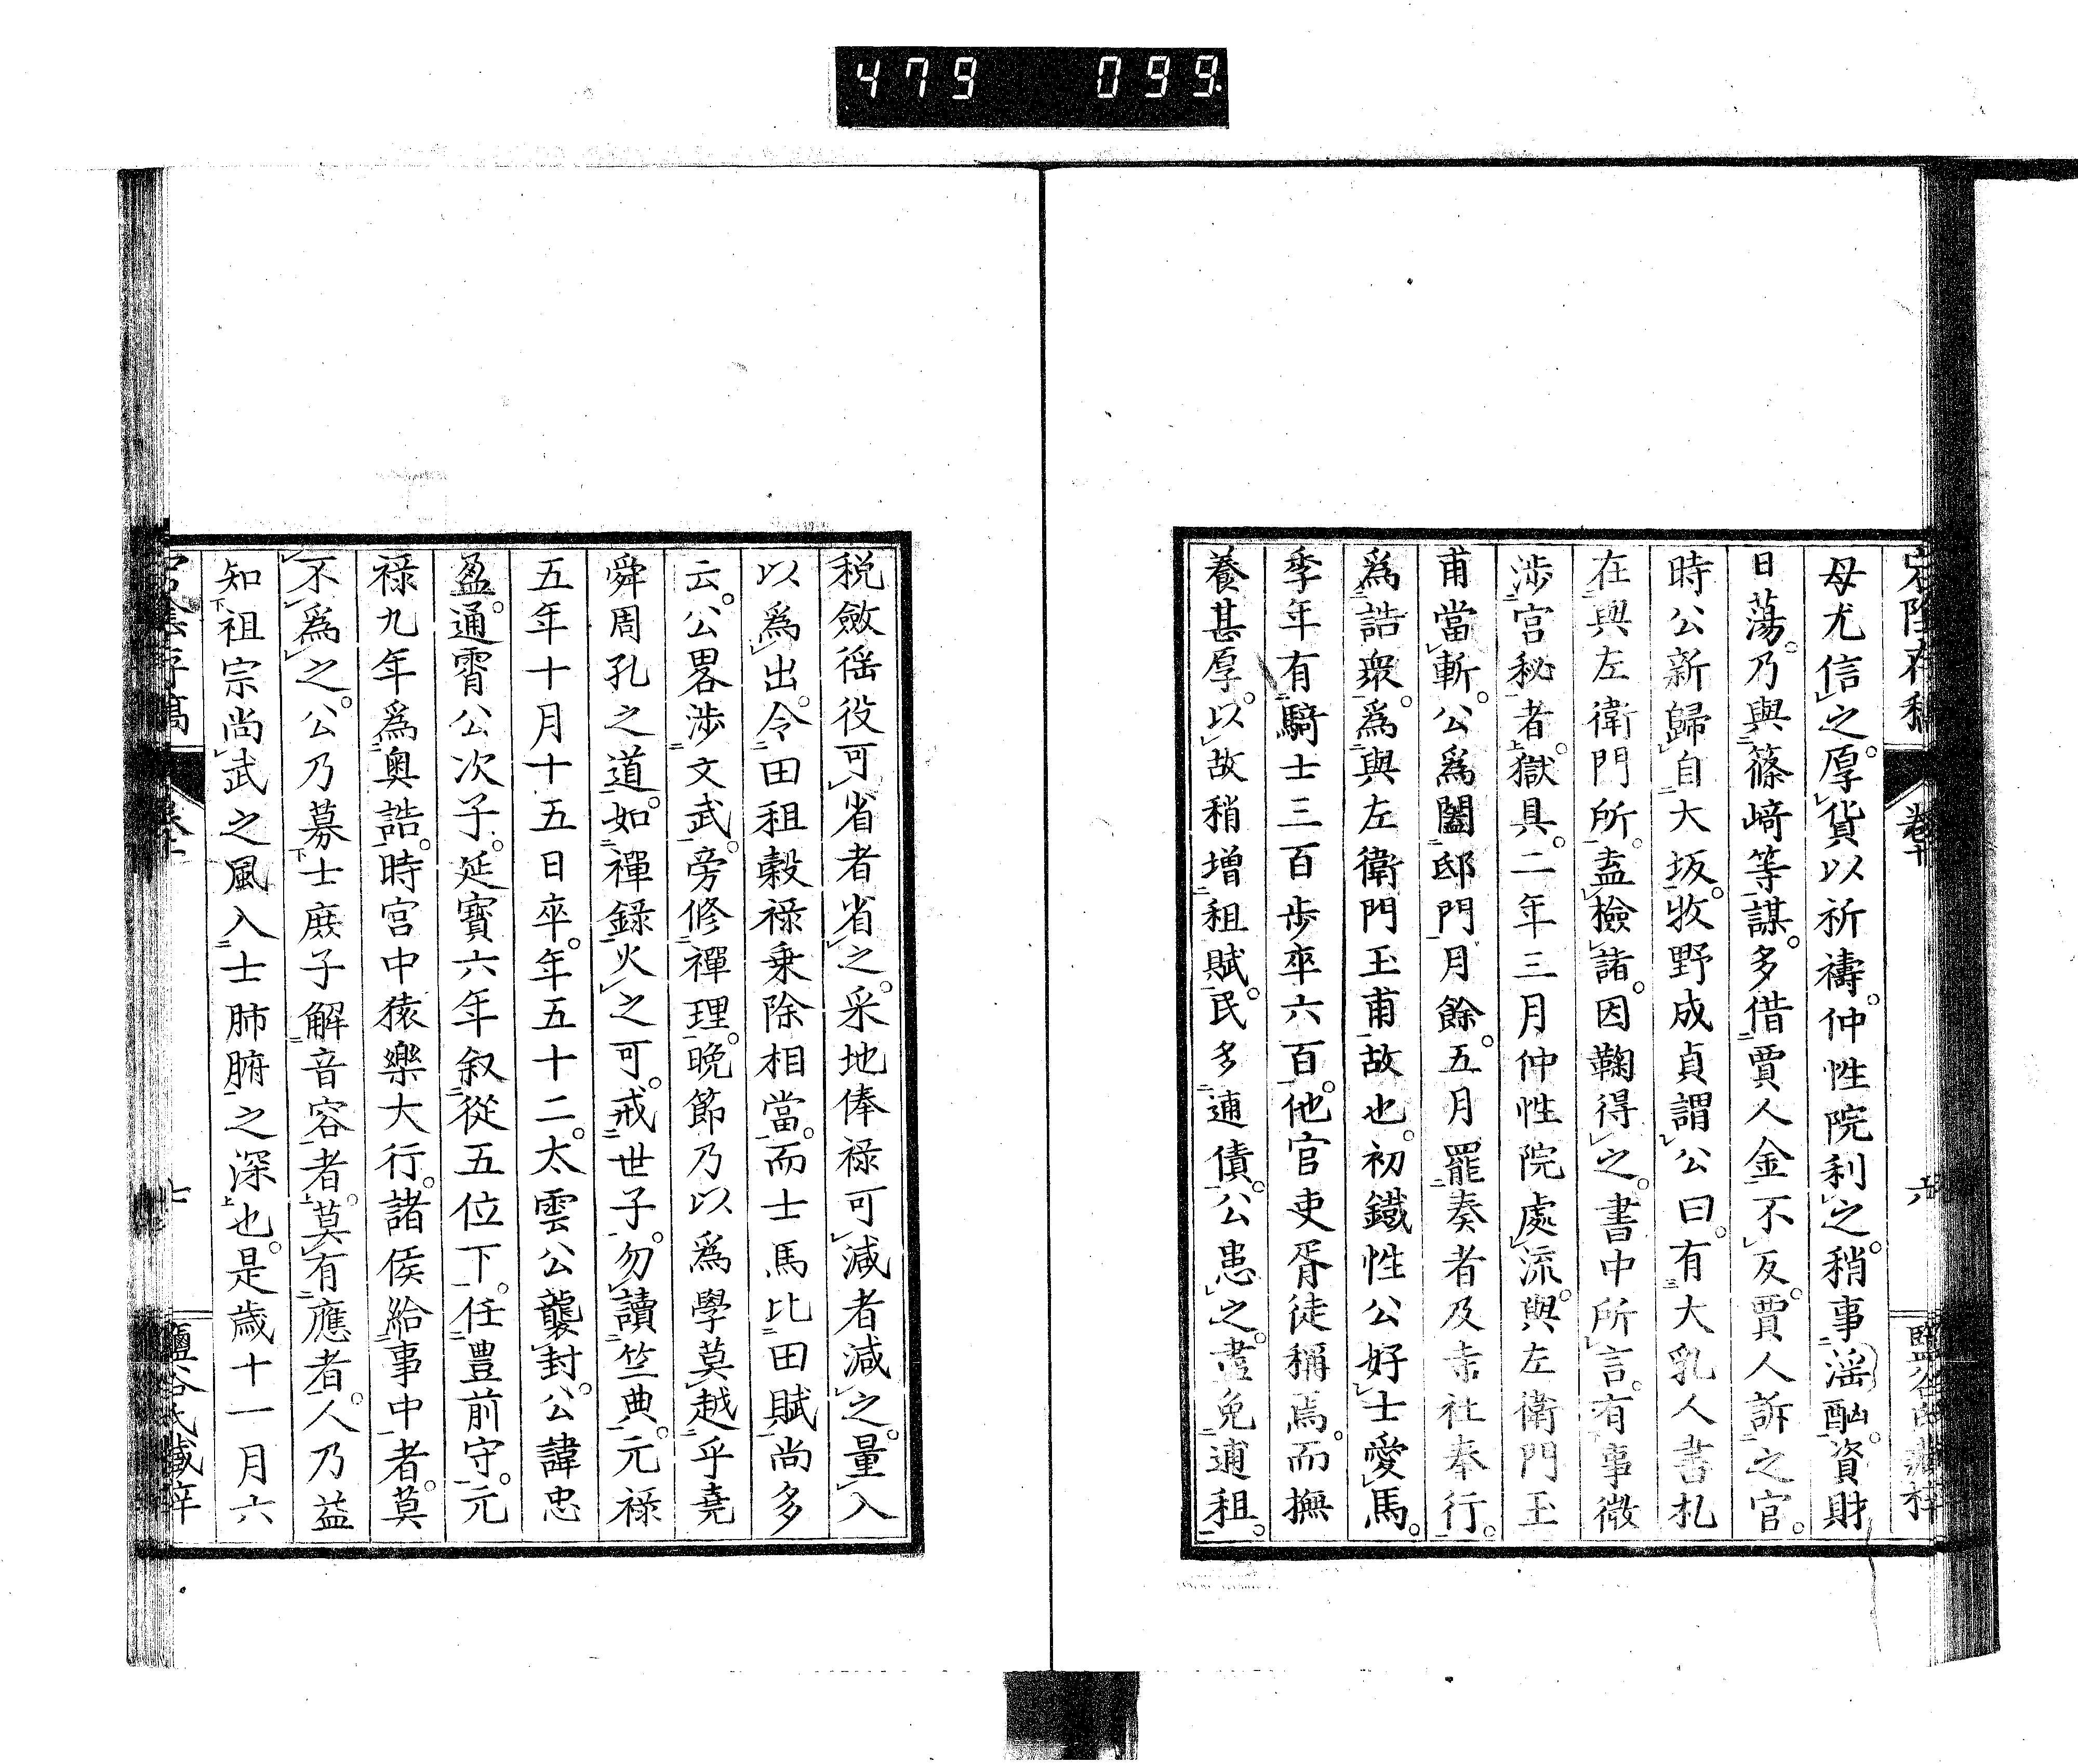 479 099
卷十
六
母尤信之。厚貨以祈禱。仲性院利之。稍事淫酗。資財
日蕩。乃與篠﨑等謀。多借賈人金不反。賈人訴之官。
時公新歸自大坂。牧野成貞謂公曰。有大乳人書札
在與左衛門所。盍檢諸。因鞠得之。書中所言。有事微
涉宮秘者。獄具。二年三月仲性院處流。與左衛門玉
甫當斬。公爲闔邸門月餘。五月罷奏者及寺社奉行。
爲誥衆。爲與左衛門玉甫故也。初鐵性公好士愛馬。
季年有騎士三百步卒六百。他官吏胥徒稱焉。而撫
養甚厚。以故稍增租賦。民多逋債。公患之。盡免逋租。
税斂徭役可省者省之。采地俸祿可減者減之。量入
以爲出。令田租穀祿乗除相當。而士馬比田賦尚多
云。公畧涉文武。旁修禪理。晚節乃以爲學莫越乎堯
舜周孔之道。如禪錄火之可。戒世子。勿讀竺典。元祿
五年十月十五日卒。年五十二。太雲公襲封。公諱忠
盈。通霄公次子。延寶六年叙從五位下。任豊前守。元
祿九年爲奧詰。時宮中猿樂大行。諸侯給事中者。莫
不爲之。公乃募士庶子解音容者。莫有應者。人乃益
知祖宗尚武之風入士肺腑之深也。是歲十一月六
七